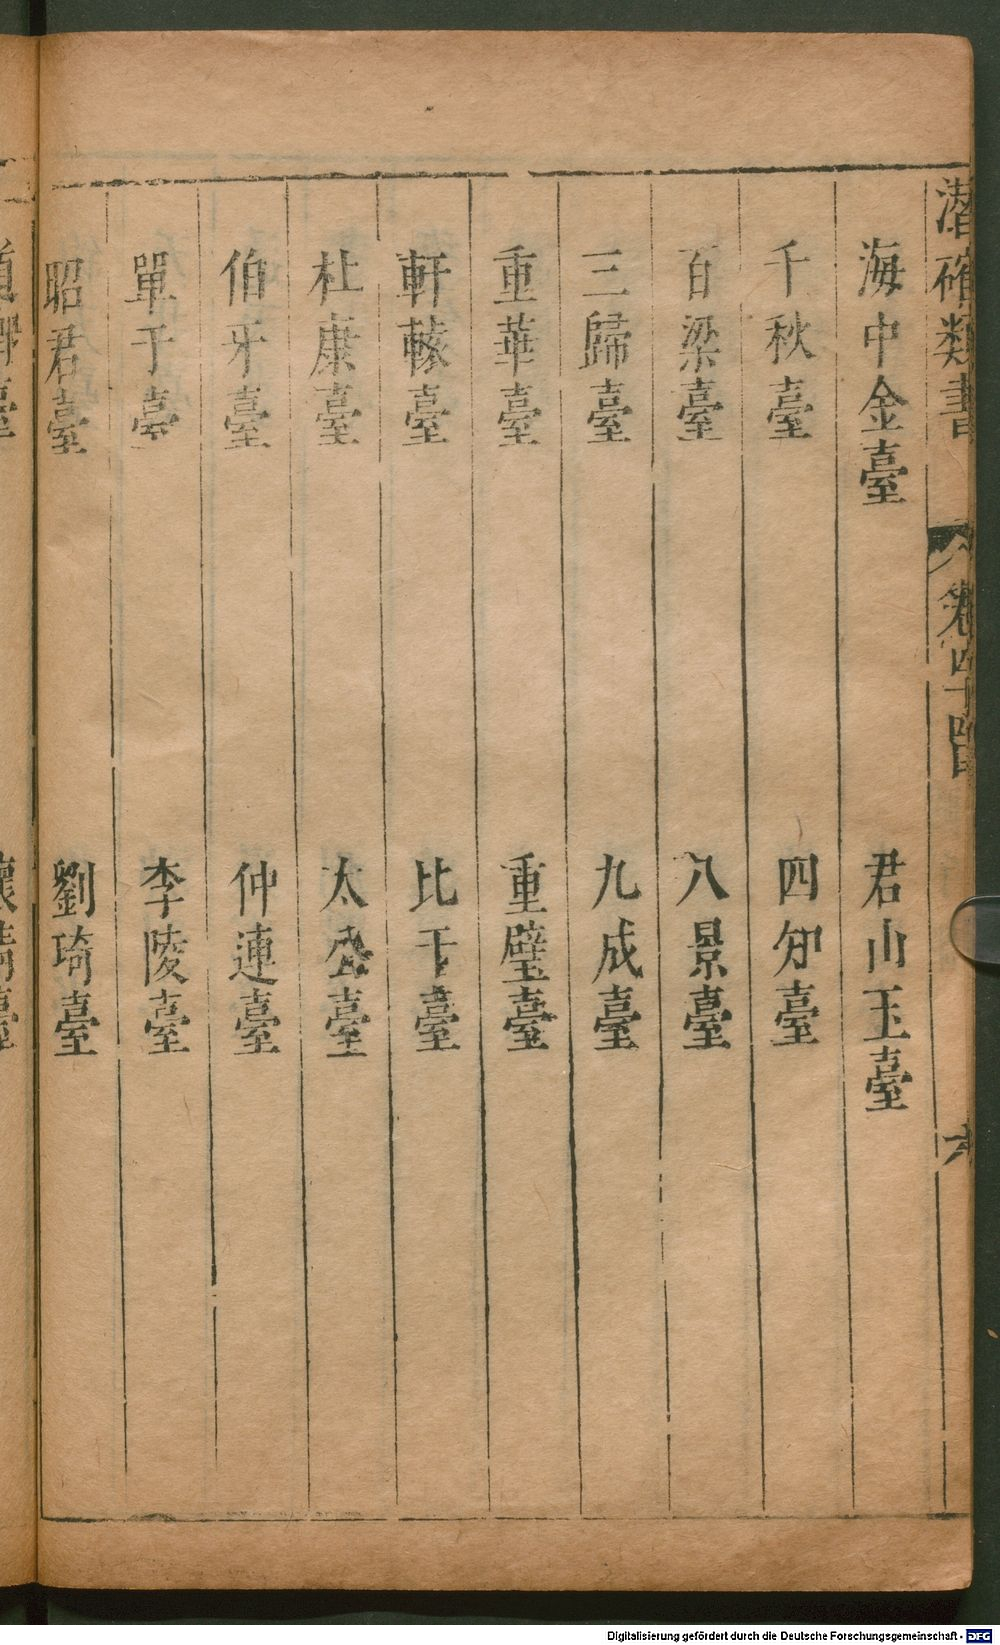 潛確類書 卷四十四 六
海中金臺 君山玉臺
千秋臺 四知臺
百梁臺 八景臺
三歸臺 九成臺
重華臺 重璧臺
軒轅臺 比干臺
杜康臺 太公臺
伯牙臺 仲連臺
單于臺 李陵臺
昭君臺 劉琦臺
Digitalisierung gefördert durch die Deutsche Forschungsgemeinschaft - DFG